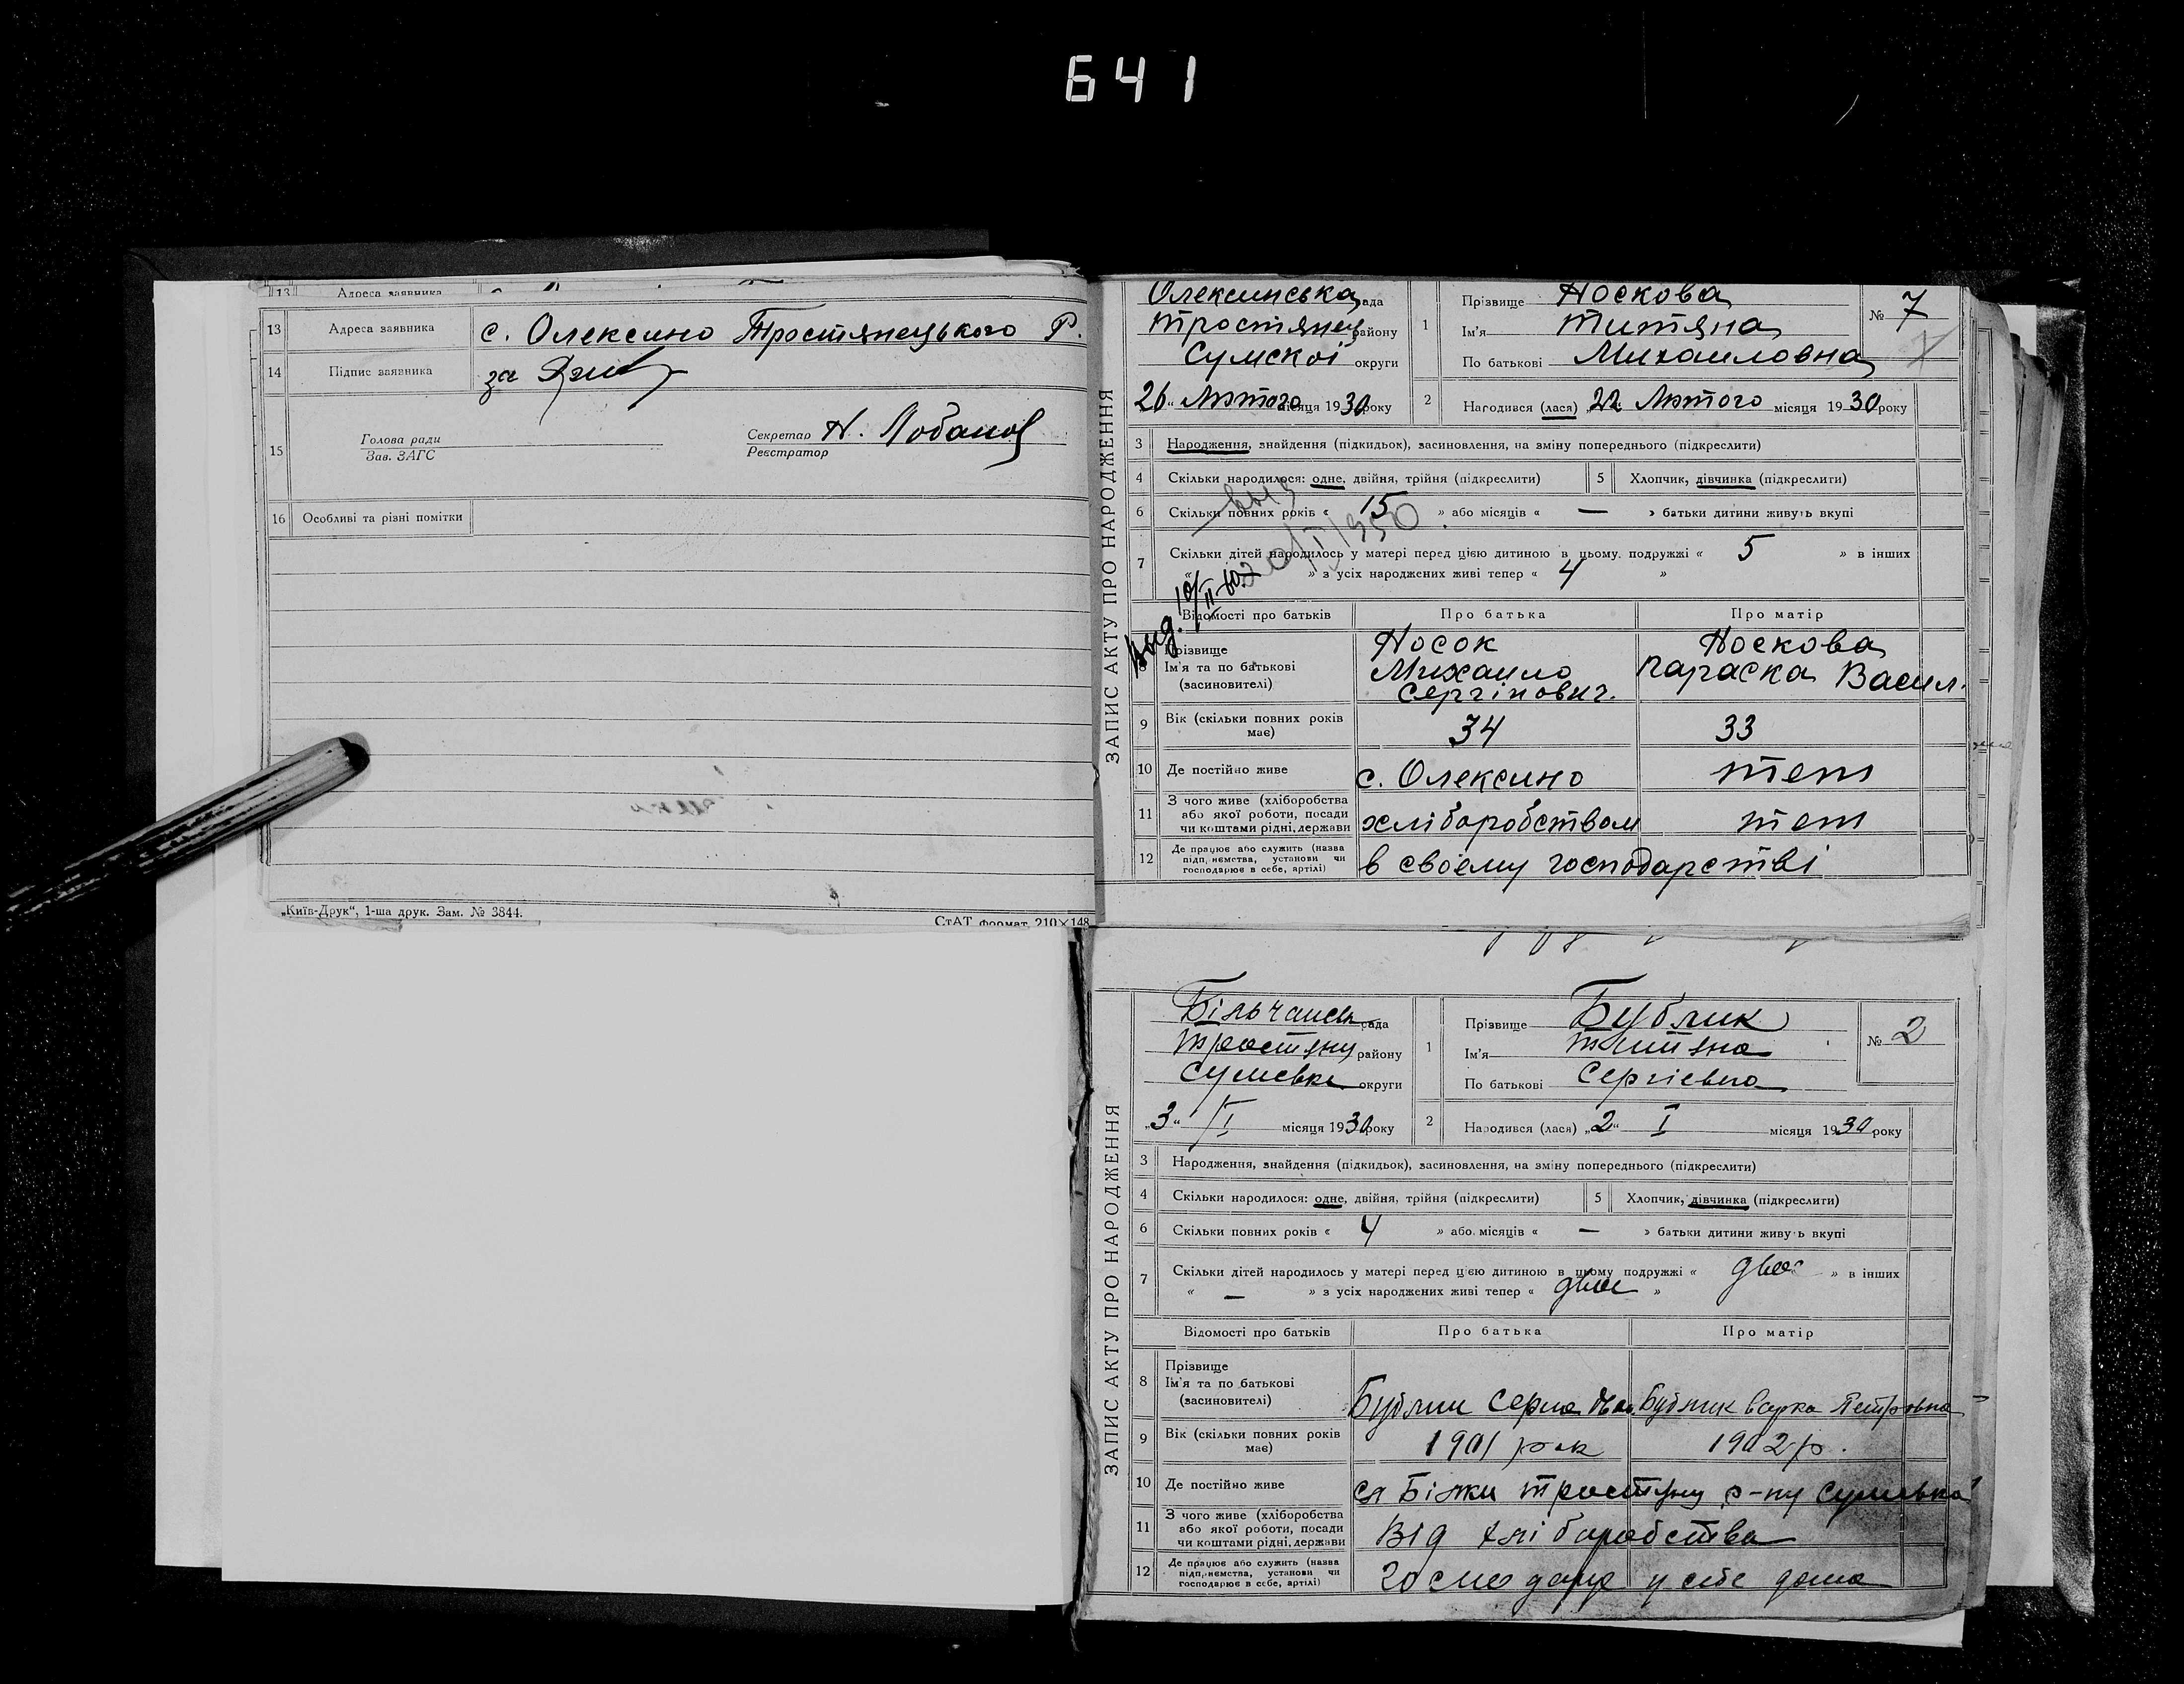 641
13 Адреса заявника
13 Адреса заявника с. Олексино Тростянецького Р.
14 Підпис заявника за
15 Голова ради Секретар Н. Лобанов
Зав. ЗАГС Реєстратор
16 Особливі та різні помітки
„Київ-Друк“, 1-ша друк. Зам. № 3844.
СтАТ формат 210×148
ЗАПИС АКТУ ПРО НАРОДЖЕННЯ
Олексинська рада
Тростянец району
Сумскої округи
26 “ Лютого місяця 1930 року
1 Прізвище Носкова
Ім'я Титяна
По батькові Михаиловна
№ 7
7
2 Народився (лася) „22 Лютого місяця 1930 року
3 Народження, знайдення (підкидьок), засиновлення, на зміну попереднього (підкреслити)
4 Скільки народилося: одне, двійня, трійня (підкреслити) 5 Хлопчик, дівчинка (підкреслити)
6 Скільки повних років « 15 » або місяців « — » батьки дитини живуть вкупі
7 Скільки дітей народилось у матері перед цією дитиною в цьому подружжі « 5 » в інших
« » з усіх народжених живі тепер « 4 »
Відомості про батьків Про батька Про матір
8 Прізвище Носок Носкова
Ім'я та по батькові Михаило Параска Васил.
(засиновителі) Сергіиович.
9 Вік (скільки повних років має) 34 33
10 Де постійно живе с. Олексино теш
11 З чого живе (хліборобства або якої роботи, посади чи коштами рідні, держави хліборобством теш
12 Де працює або служить (назва підприємства, установи чи господарює в себе, артілі) в своєму господарстві
ЗАПИС АКТУ ПРО НАРОДЖЕННЯ
Більчанськ рада
Тростяну району
Сумська округи
„3“ I місяця 1930 року
1 Прізвище Бублик
Ім'я Титяна
По батькові Сергієвна
№ 2
2 Народився (лася) „2“ I місяця 1930 року
3 Народження, знайдення (підкидьок), засиновлення, на зміну попереднього (підкреслити)
4 Скільки народилося: одне, двійня, трійня (підкреслити) 5 Хлопчик, дівчинка (підкреслити)
6 Скільки повних років « 4 » або місяців « — » батьки дитини живуть вкупі
7 Скільки дітей народилось у матері перед цією дитиною в цьому подружжі « двоє » в інших
« — » з усіх народжених живі тепер « двоє »
Відомості про батьків Про батька Про матір
8 Прізвище
Ім'я та по батькові
(засиновителі) Бублик Бублик Варка Петровна
9 Вік (скільки повних років має) 1901 рок 1902 р.
10 Де постійно живе сл Білки Тростяну р-ну Сумська
11 З чого живе (хліборобства або якої роботи, посади чи коштами рідні, держави Від хліборобства
12 Де працює або служить (назва підприємства, установи чи господарює в себе, артілі) господарує у себе дома